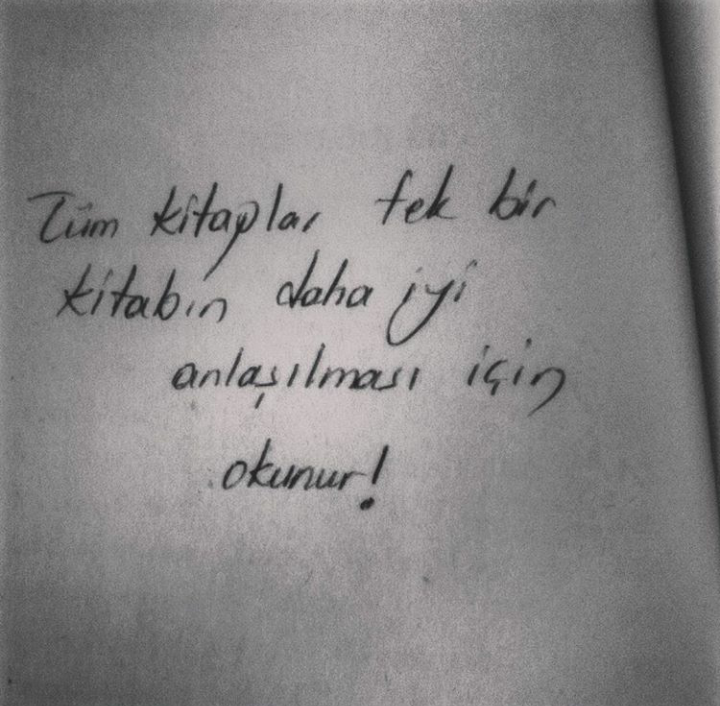 Tüm kitaplar tek bir
kitabın daha iyi
anlaşılması için
okunur!